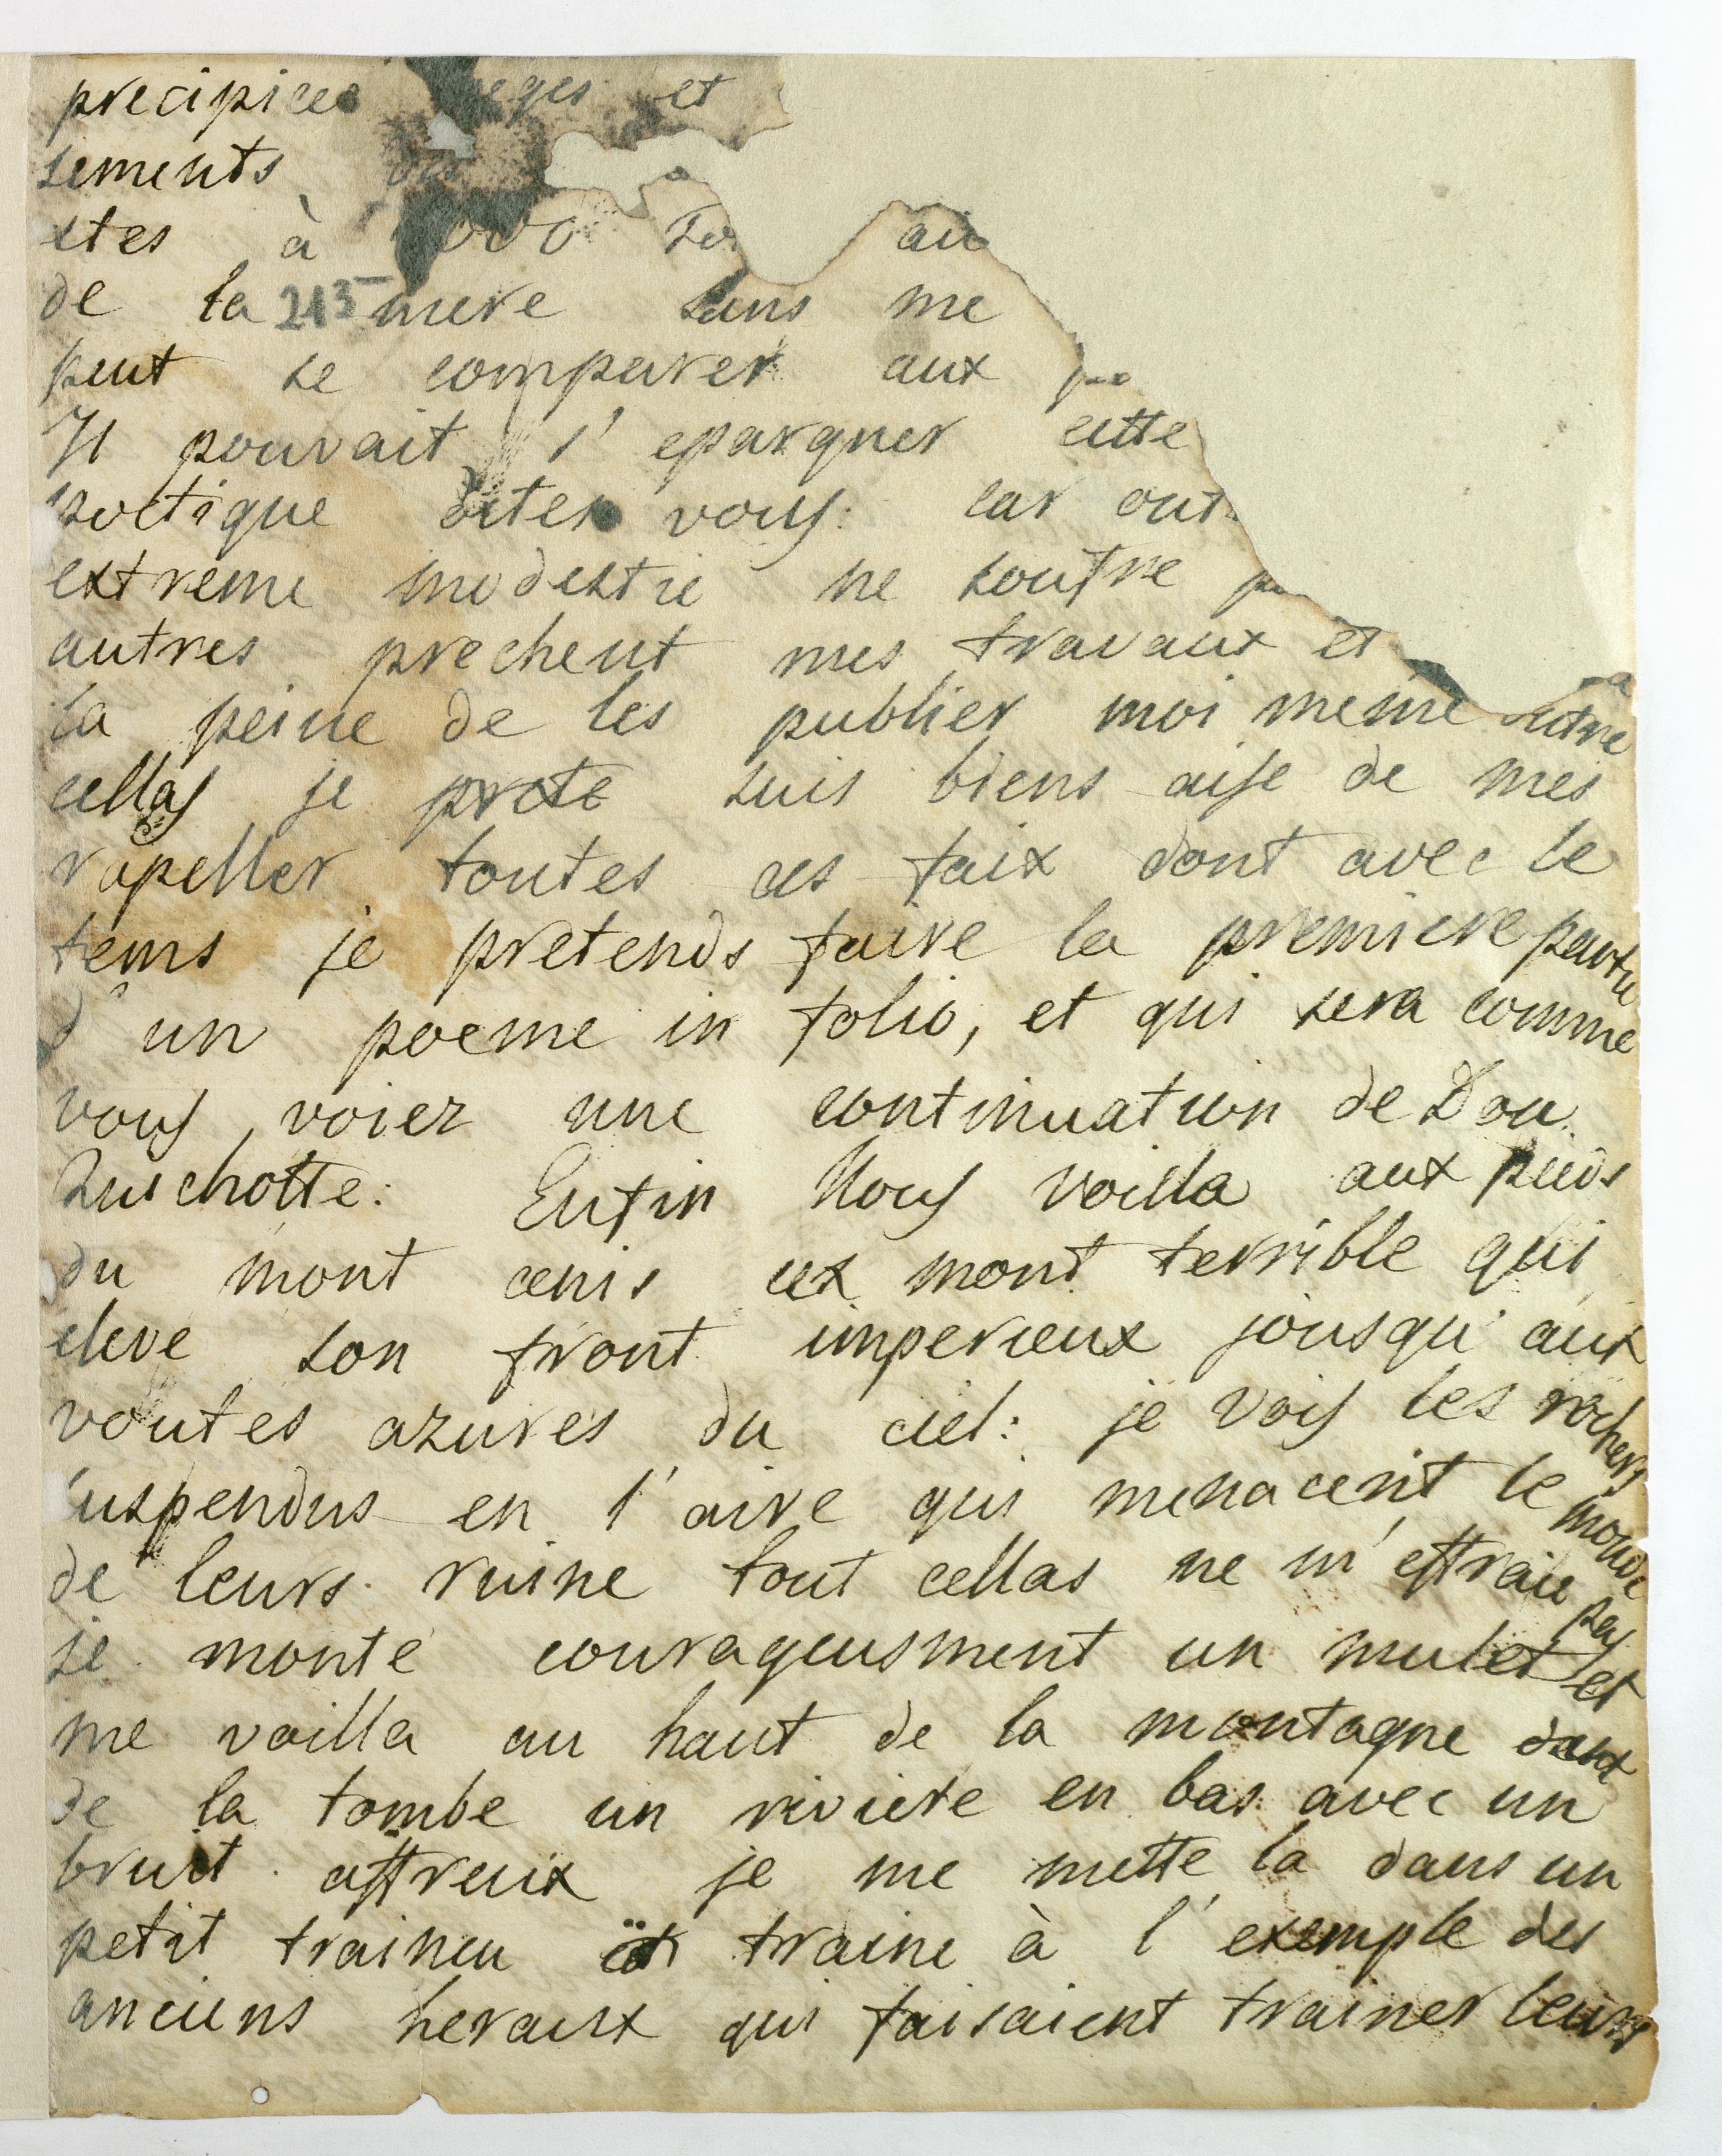 precipices eges et
sements
etes à 000 au
de la 213 mere sans me
peut se comparer aux
Il pouvait s' epargner cette
poetique dites vous: car out
extreme modestie ne soufre
autres prechent mes travaux et
la peine de les publier moi meme outre
cellas je prete suis biens aise de mes
rapeller toutes ces faix dont avec le
tems je pretends faire la premiere partie
d' un poeme in folio, et qui sera comme
vous voiez une continuation de Don
Quichotte: Enfin Nous voilla aux pieds
du mont cenis ce mont terrible qui
eleve son front imperieux jousqu' aux
voutes azures du ciel: je vois les rochers
suspendus en l' aire qui menacent le monde
de leurs ruine tout cellas ne m' effraie pas
je monte courageusment un mulet et
me voilla au haut de la montagne
de la tombe un riviere en bas avec un
bruit affreux je me mette la dans un
petit traineu et traine à l' exemple des
anciens heraux qui faisaient trainer leurs